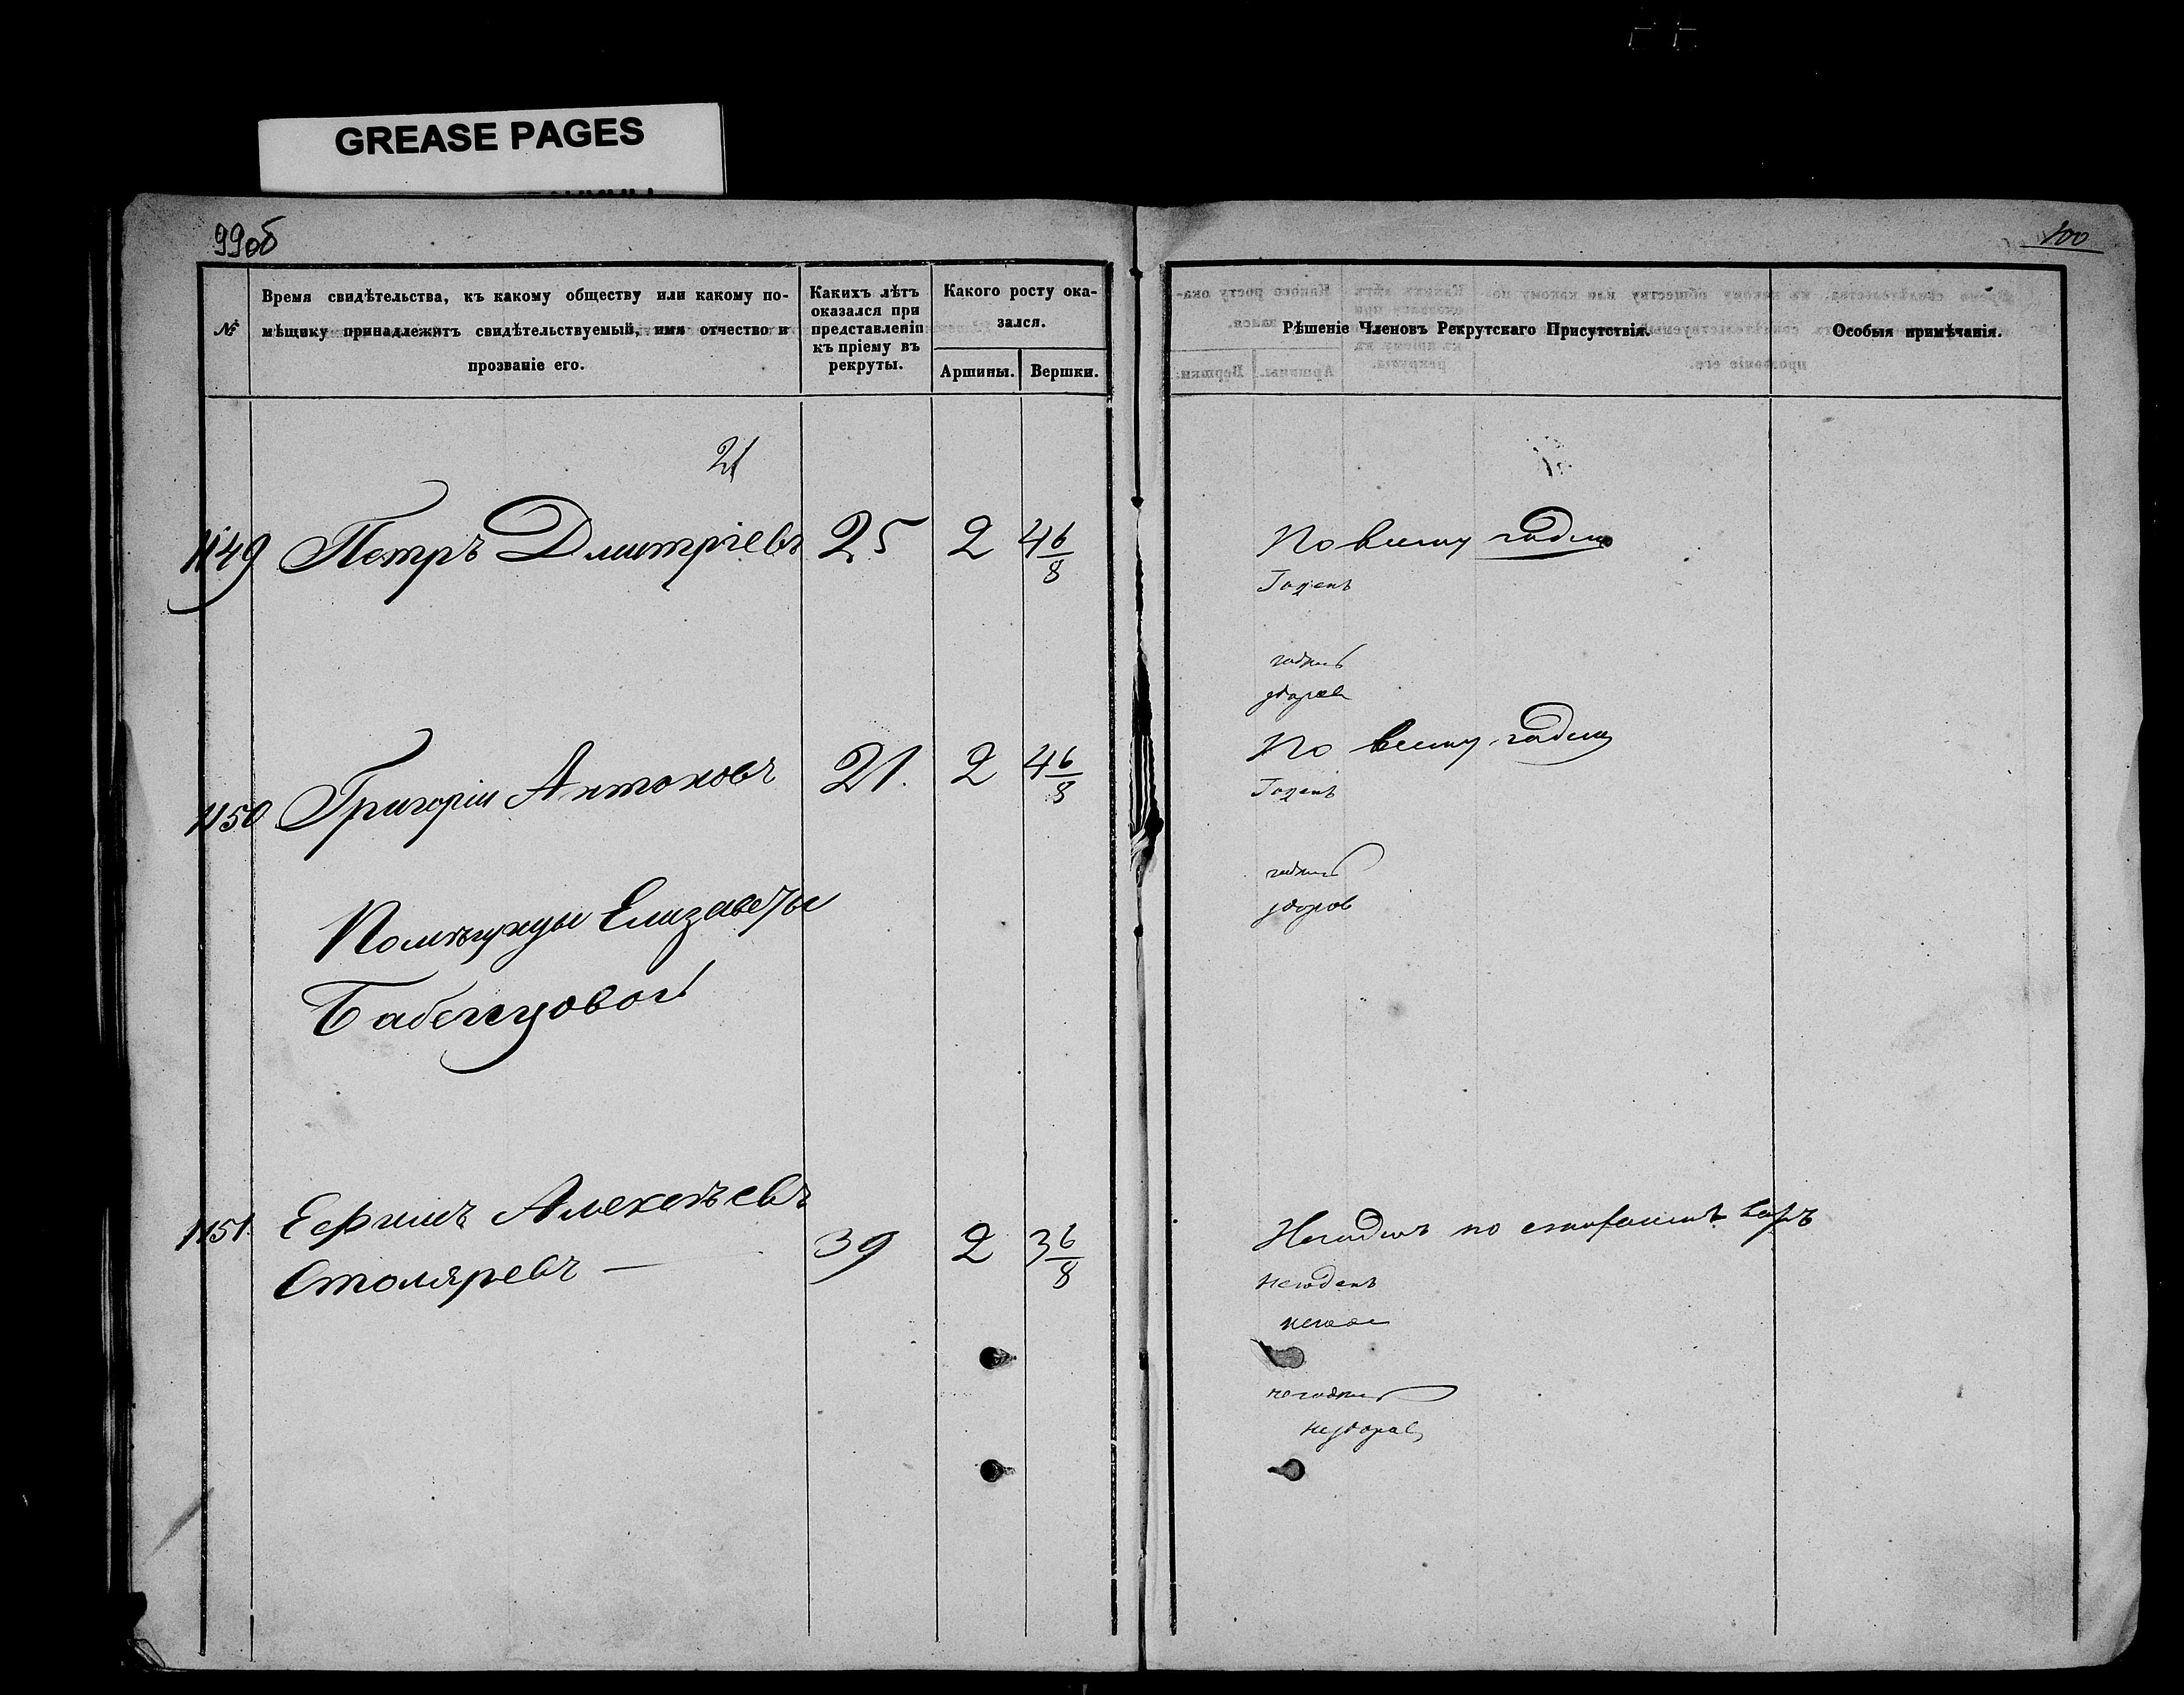 GREASE PAGES
99об
100
№
Время свидѣтельства, къ какому обществу или какому по-
мѣщику принадлежитъ свидѣтельствуемый, имя отчество и
прозваніе его.
Какихъ лѣтъ
оказался при
представленіи
къ пріему въ
рекруты.
Какого росту ока-
зался.
Аршины.
Вершки.
Рѣшеніе Членовъ Рекрутскаго Присутствія.
Особыя примѣчанія.
21
1149 Петръ Дмитріевъ 25 2 4 6/8 По всему годенъ
Годенъ
годенъ
здоров
1150 Григорій Антоновъ 21. 2 4 6/8 По всему годенъ
Годенъ
годенъ
здоров
Помѣщицы Елизаветы
1151. Ефимъ Алексѣевъ
Столяревъ — 39 2 3 6/8 Негоденъ по
негоденъ
негоденъ
нездоров